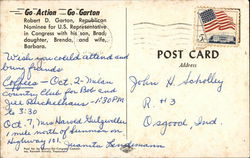 Go Action — Go Garton
Robert D. Garton, Republican
Nominee for U.S. Representative
in Congress with his son, Brad;
daughter, Brenda, and wife,
Barbara.
Wish you could attend and
bring friends
Coffees — Oct. 2 - Milan
Country Club for Bob and
Jee 1:30 PM
to 3:30
Oct. 7, Mrs Harold
1 mile north of on
Highway 101.
Juanita
POST CARD
Address
John H. Scholley
R #3
Osgood, Ind.